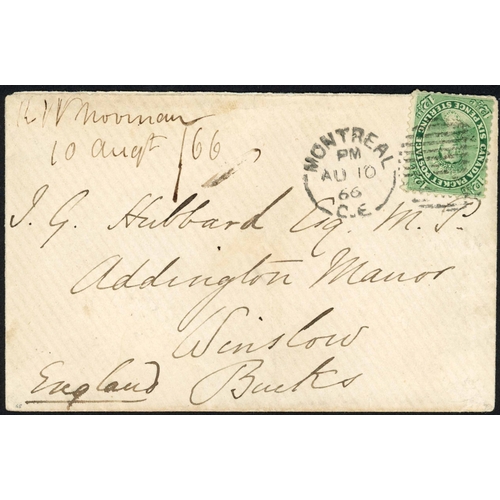 10 Augt /66
MONTREAL
PM
AU 10
66
C.E
CANADA PACKET POSTAGE
SIX PENCE STERLING
J. G. Hubbard Esq. M. P.
Addington Manor
Winslow
Bucks
England